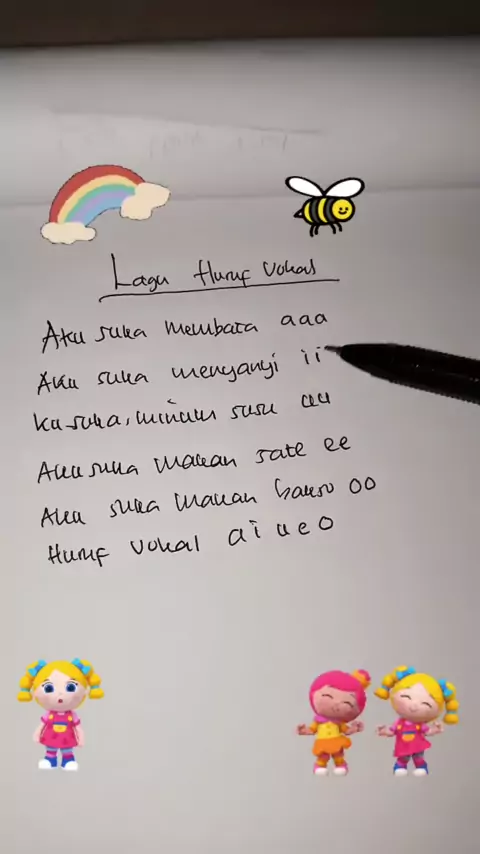 Lagu Huruf Vokal
Aku suka membaca aaa
Aku suka menyanyi ii
Ku suka, minum susu uu
Aku suka makan sate ee
Aku suka makan bakso oo
Huruf vokal a i u e o